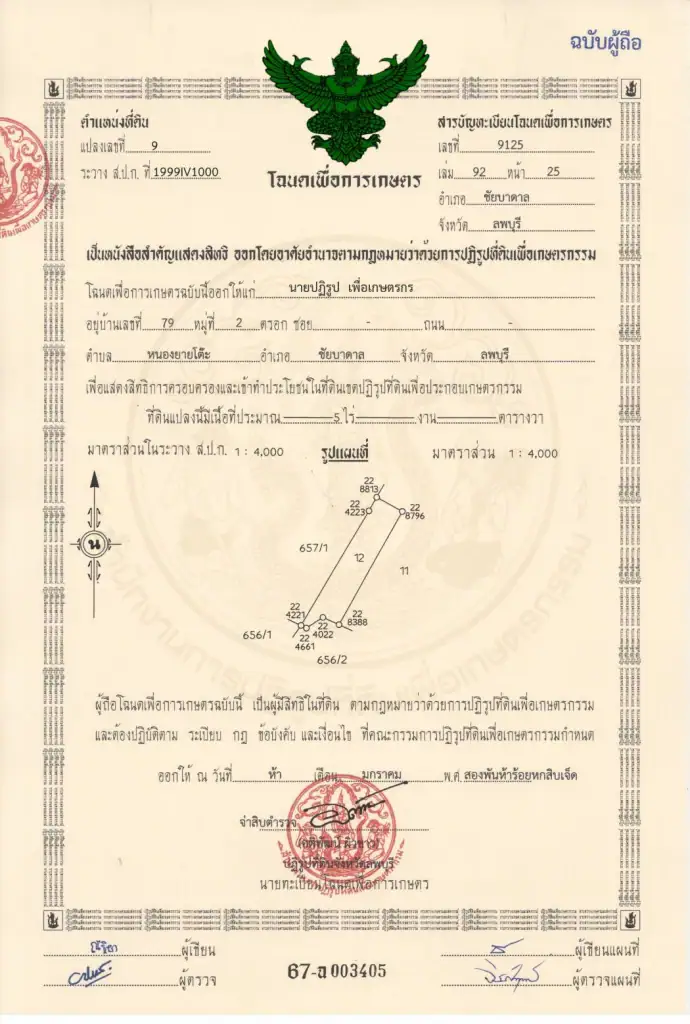 ฉบับผู้ถือ
ตำแหน่งที่ดิน
แปลงเลขที่ 9
ระวาง ส.ป.ก. ที่ 1999IV1000
สารบัญทะเบียนโฉนดเพื่อการเกษตร
เลขที่ 9125
เล่ม 92 หน้า 25
อำเภอ ชัยบาดาล
จังหวัด ลพบุรี
โฉนดเพื่อการเกษตร
เป็นหนังสือสำคัญแสดงสิทธิ ออกโดยอาศัยอำนาจตามกฎหมายว่าด้วยการปฏิรูปที่ดินเพื่อเกษตรกรรม
โฉนดเพื่อการเกษตรฉบับนี้ออกให้แก่ นายปฏิรูป เพื่อเกษตรกร
อยู่บ้านเลขที่ 79 หมู่ที่ 2 ตรอก ซอย - ถนน -
ตำบล หนองยายโต๊ะ อำเภอ ชัยบาดาล จังหวัด ลพบุรี
เพื่อแสดงสิทธิการครอบครองและเข้าทำประโยชน์ในที่ดินเขตปฏิรูปที่ดินเพื่อประกอบเกษตรกรรม
ที่ดินแปลงนี้มีเนื้อที่ประมาณ 5 ไร่ งาน ตารางวา
มาตราส่วนในระวาง ส.ป.ก. 1 : 4,000 รูปแผนที่ มาตราส่วน 1 : 4,000
22
8813
22
4223
22
8796
657/1
12
11
น
22
4221
22
8388
656/1
22
4661
22
4022
656/2
ผู้ถือโฉนดเพื่อการเกษตรฉบับนี้ เป็นผู้มีสิทธิในที่ดิน ตามกฎหมายว่าด้วยการปฏิรูปที่ดินเพื่อเกษตรกรรม
และต้องปฏิบัติตาม ระเบียบ กฎ ข้อบังคับ และเงื่อนไข ที่คณะกรรมการปฏิรูปที่ดินเพื่อเกษตรกรรมกำหนด
ออกให้ ณ วันที่ ห้า เดือน มกราคม พ.ศ. สองพันห้าร้อยหกสิบเจ็ด
จ่าสิบตำรวจ
ปฏิรูปที่ดินจังหวัดลพบุรี
นายทะเบียนโฉนดเพื่อการเกษตร
ผู้เขียน
ผู้ตรวจ
67-ฉ 003405
ผู้เขียนแผนที่
ผู้ตรวจแผนที่